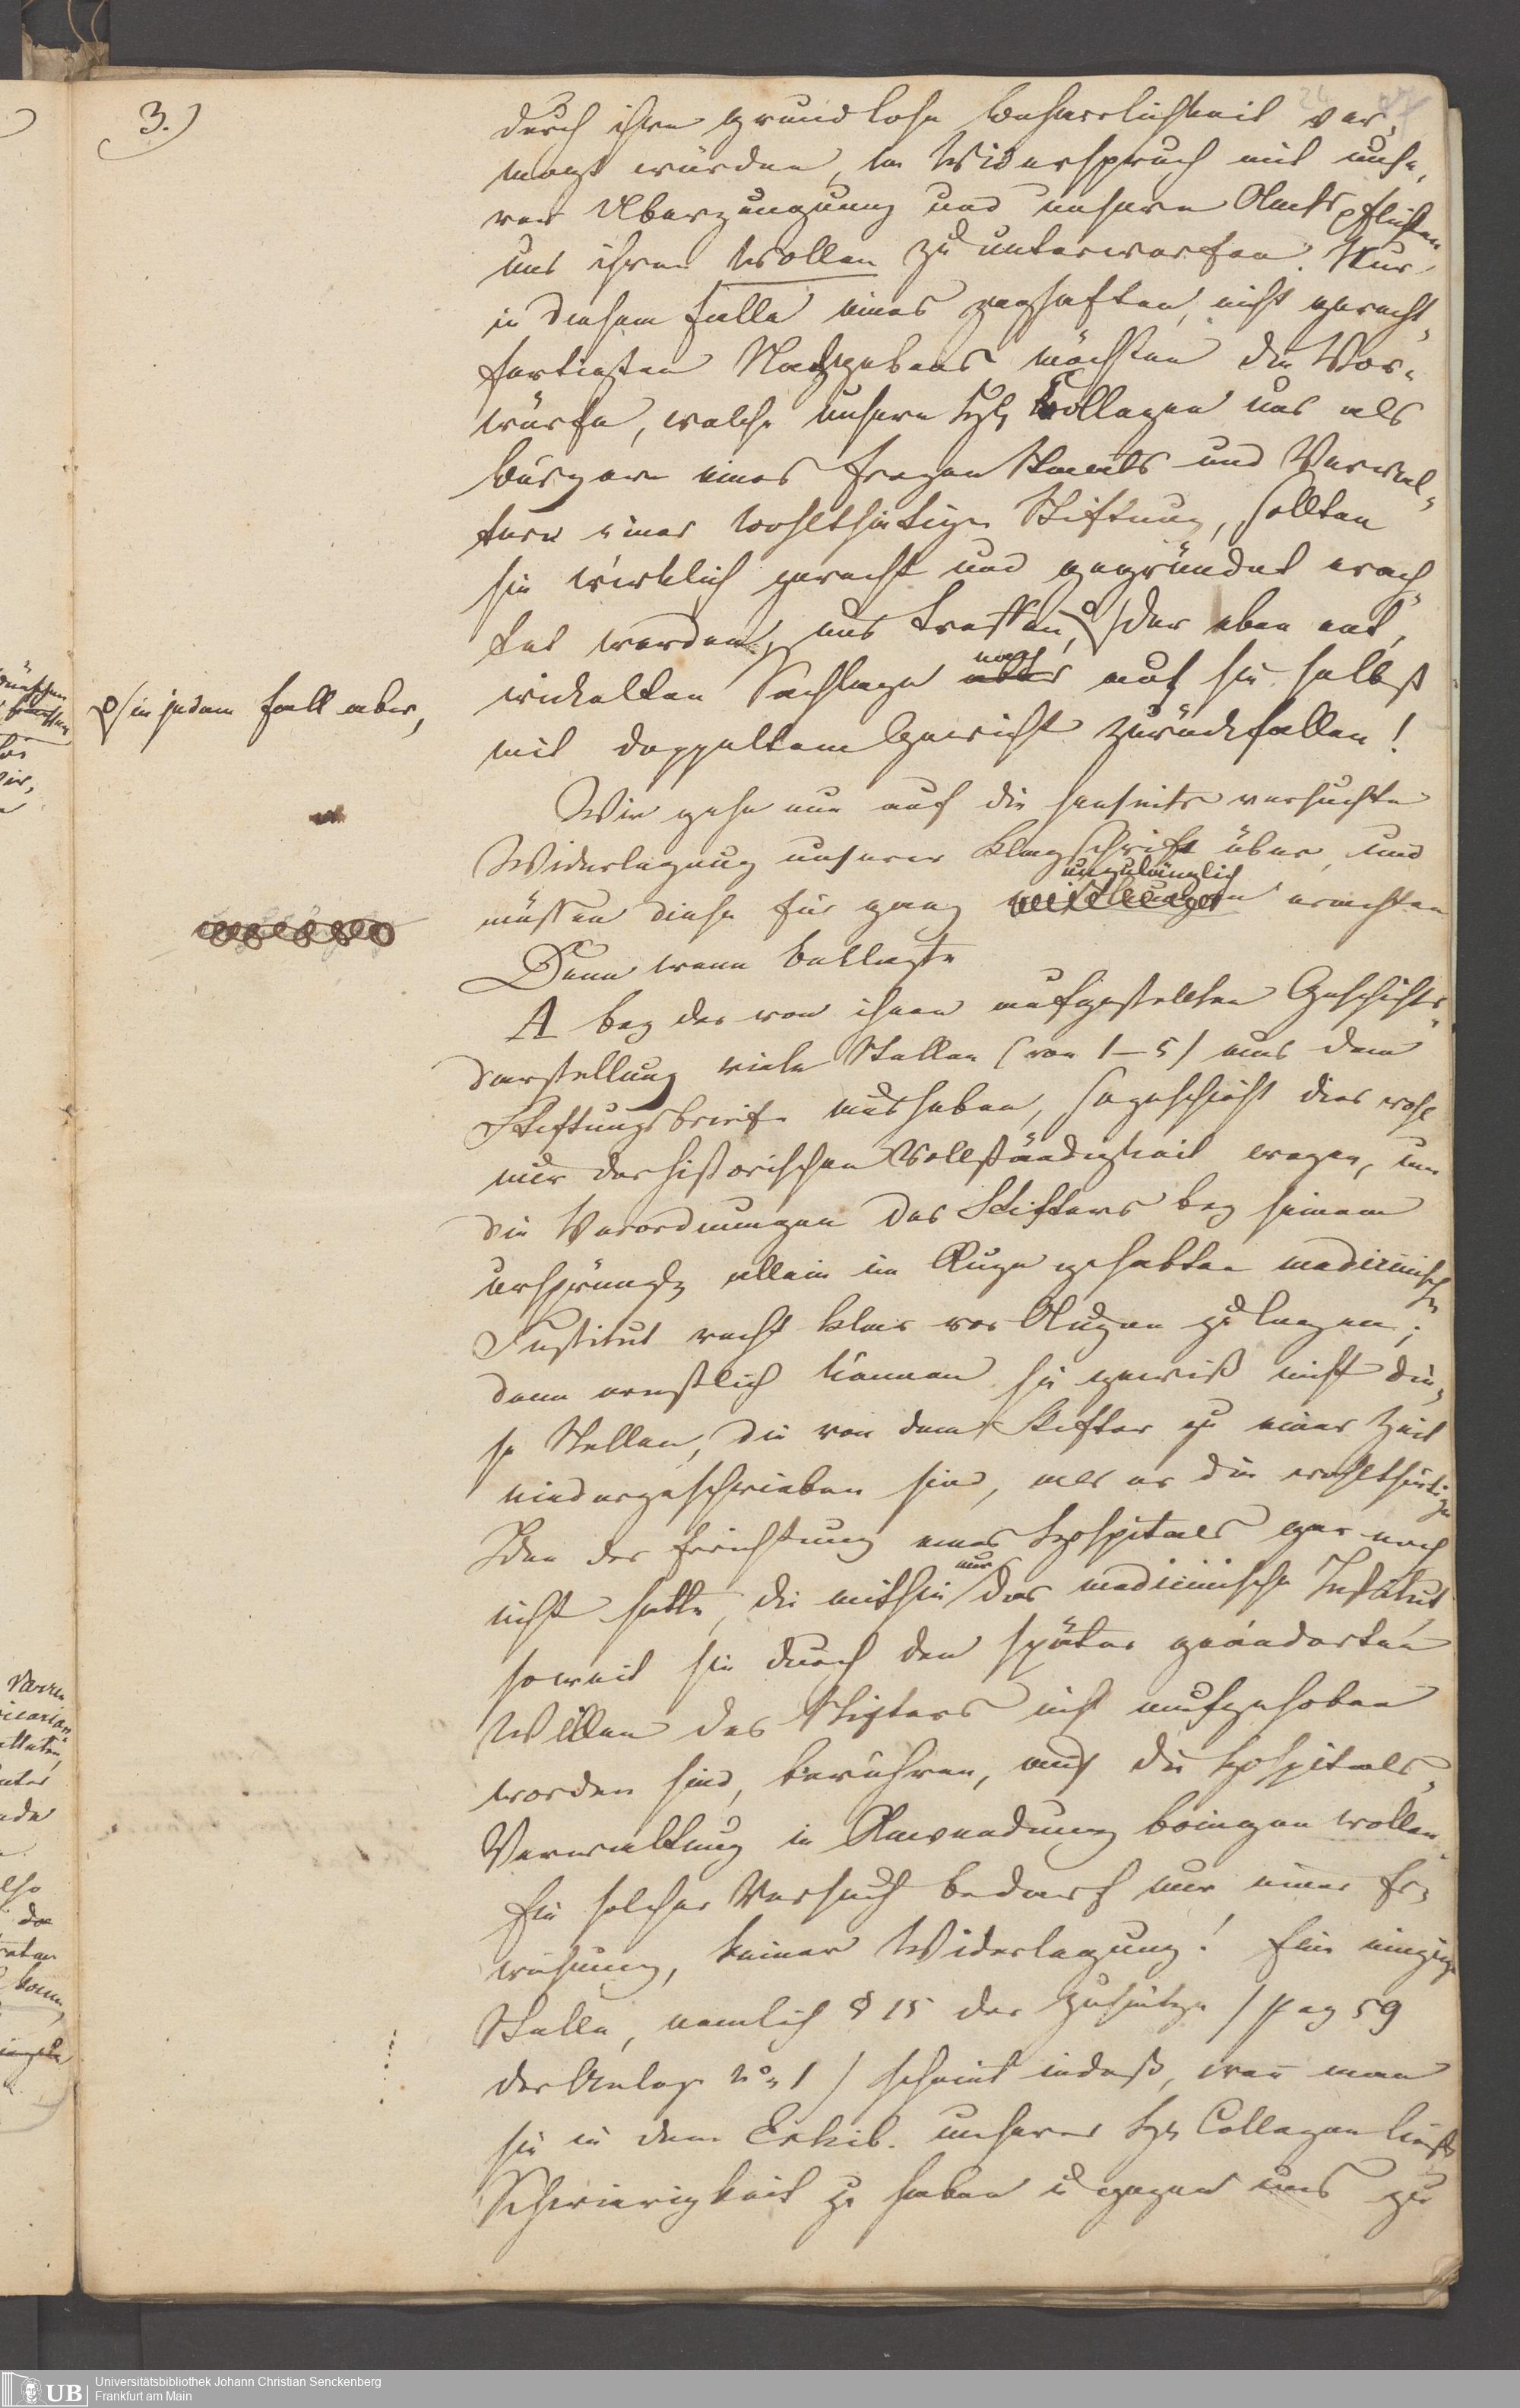 3.)
durch ihre grundlose Beharrlichkeit ver-
mogt würden, im Widerspruch mit unse-
rer Überzeugung und unseren Amtspflichten
uns ihren Wollen zu unterwerfen. Nur
in diesem Falle eines zaghaften, nicht gerecht-
fertigten Nachgebens möchten die Vor-
würfe, welche unsere HH Collegen uns als
Bürgern eines freyen Staats und Verwal-
tern einer wohlthätigen Stiftung, sollten
sie wirklich gerecht und gegründet erach-
tet werden, uns treffen, der eben ent-
(in jedem Fall aber,
wickelten Sachlage nach auf sie selbst
mit doppeltem Gewicht zurückfallen!
Wir gehn nun auf die jenseits versuchte
Widerlegung unserer Klagschrift über, und
unzulänglich
müssen diese für ganz mißlungen erachten
Denn wenn Beklagte
A bey der von ihnen aufgestellten Geschichts-
darstellung viele Stellen (von 1–5) aus dem
Stiftungsbriefe ausheben, so geschieht dies wohl
nur der historischen Vollständigkeit wegen, um
die Verordnungen des Stifters bey seinem
ursprüngl allein im Auge gehabten medicinischen
Institut recht klar vor Augen zu legen;
denn ernstlich können sie gewiß nicht die-
se Stellen, die von dem Stifter zu einer Zeit
niedergeschrieben sind, als er die wohlthätige
Idee der Errichtung eines Hospitals gar noch
nicht hatte, die mithin nur das medicinische Institut
soweit sie durch den später geänderten
Willen des Stifters nicht aufgehoben
worden sind, berühren, auf die Hospitals-
Verwaltung in Anwendung bringen wollen.
Ein solcher Versuch bedarf nur einer Er-
wähnung, keiner Widerlegung! Eine einzige
Stelle, nemlich § 15 der Zusätze / pag 59
der Anlage No 1 / scheint indeß, wenn man
sie in dem Exhib. unserer HH Collegen ließt
Schwierigkeit zu haben u gegen uns zu
Universitätsbibliothek Johann Christian Senckenberg
Frankfurt am Main
UB